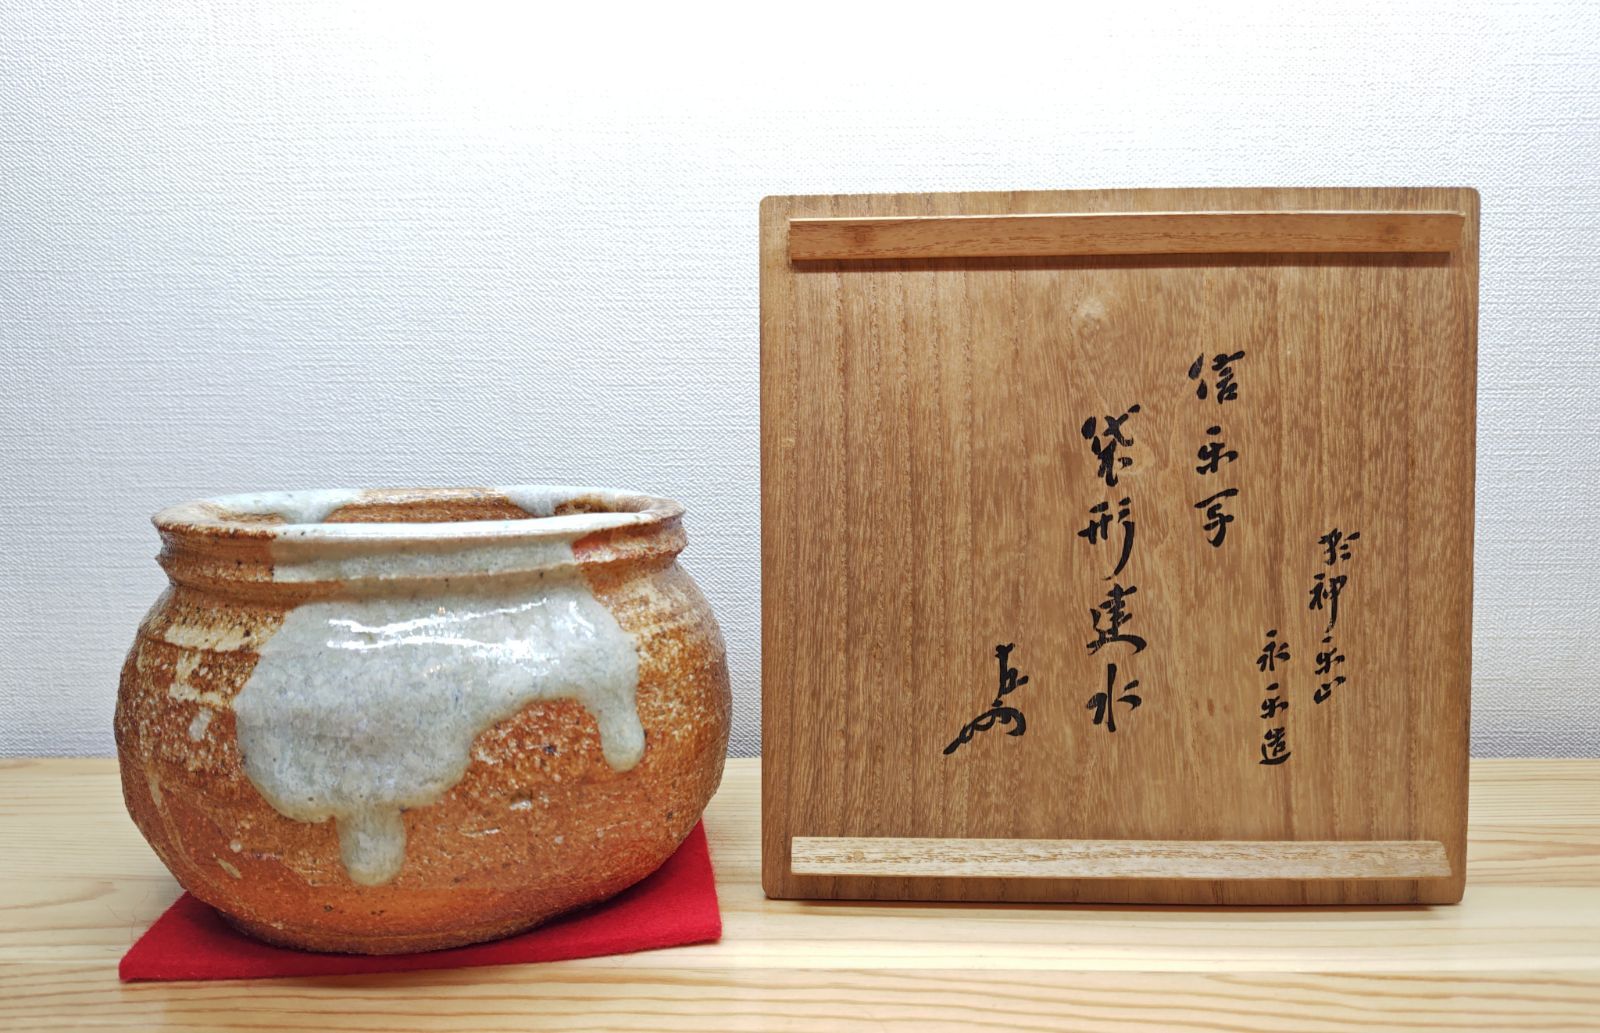 於神楽山
永楽造
信楽写
袋形建水